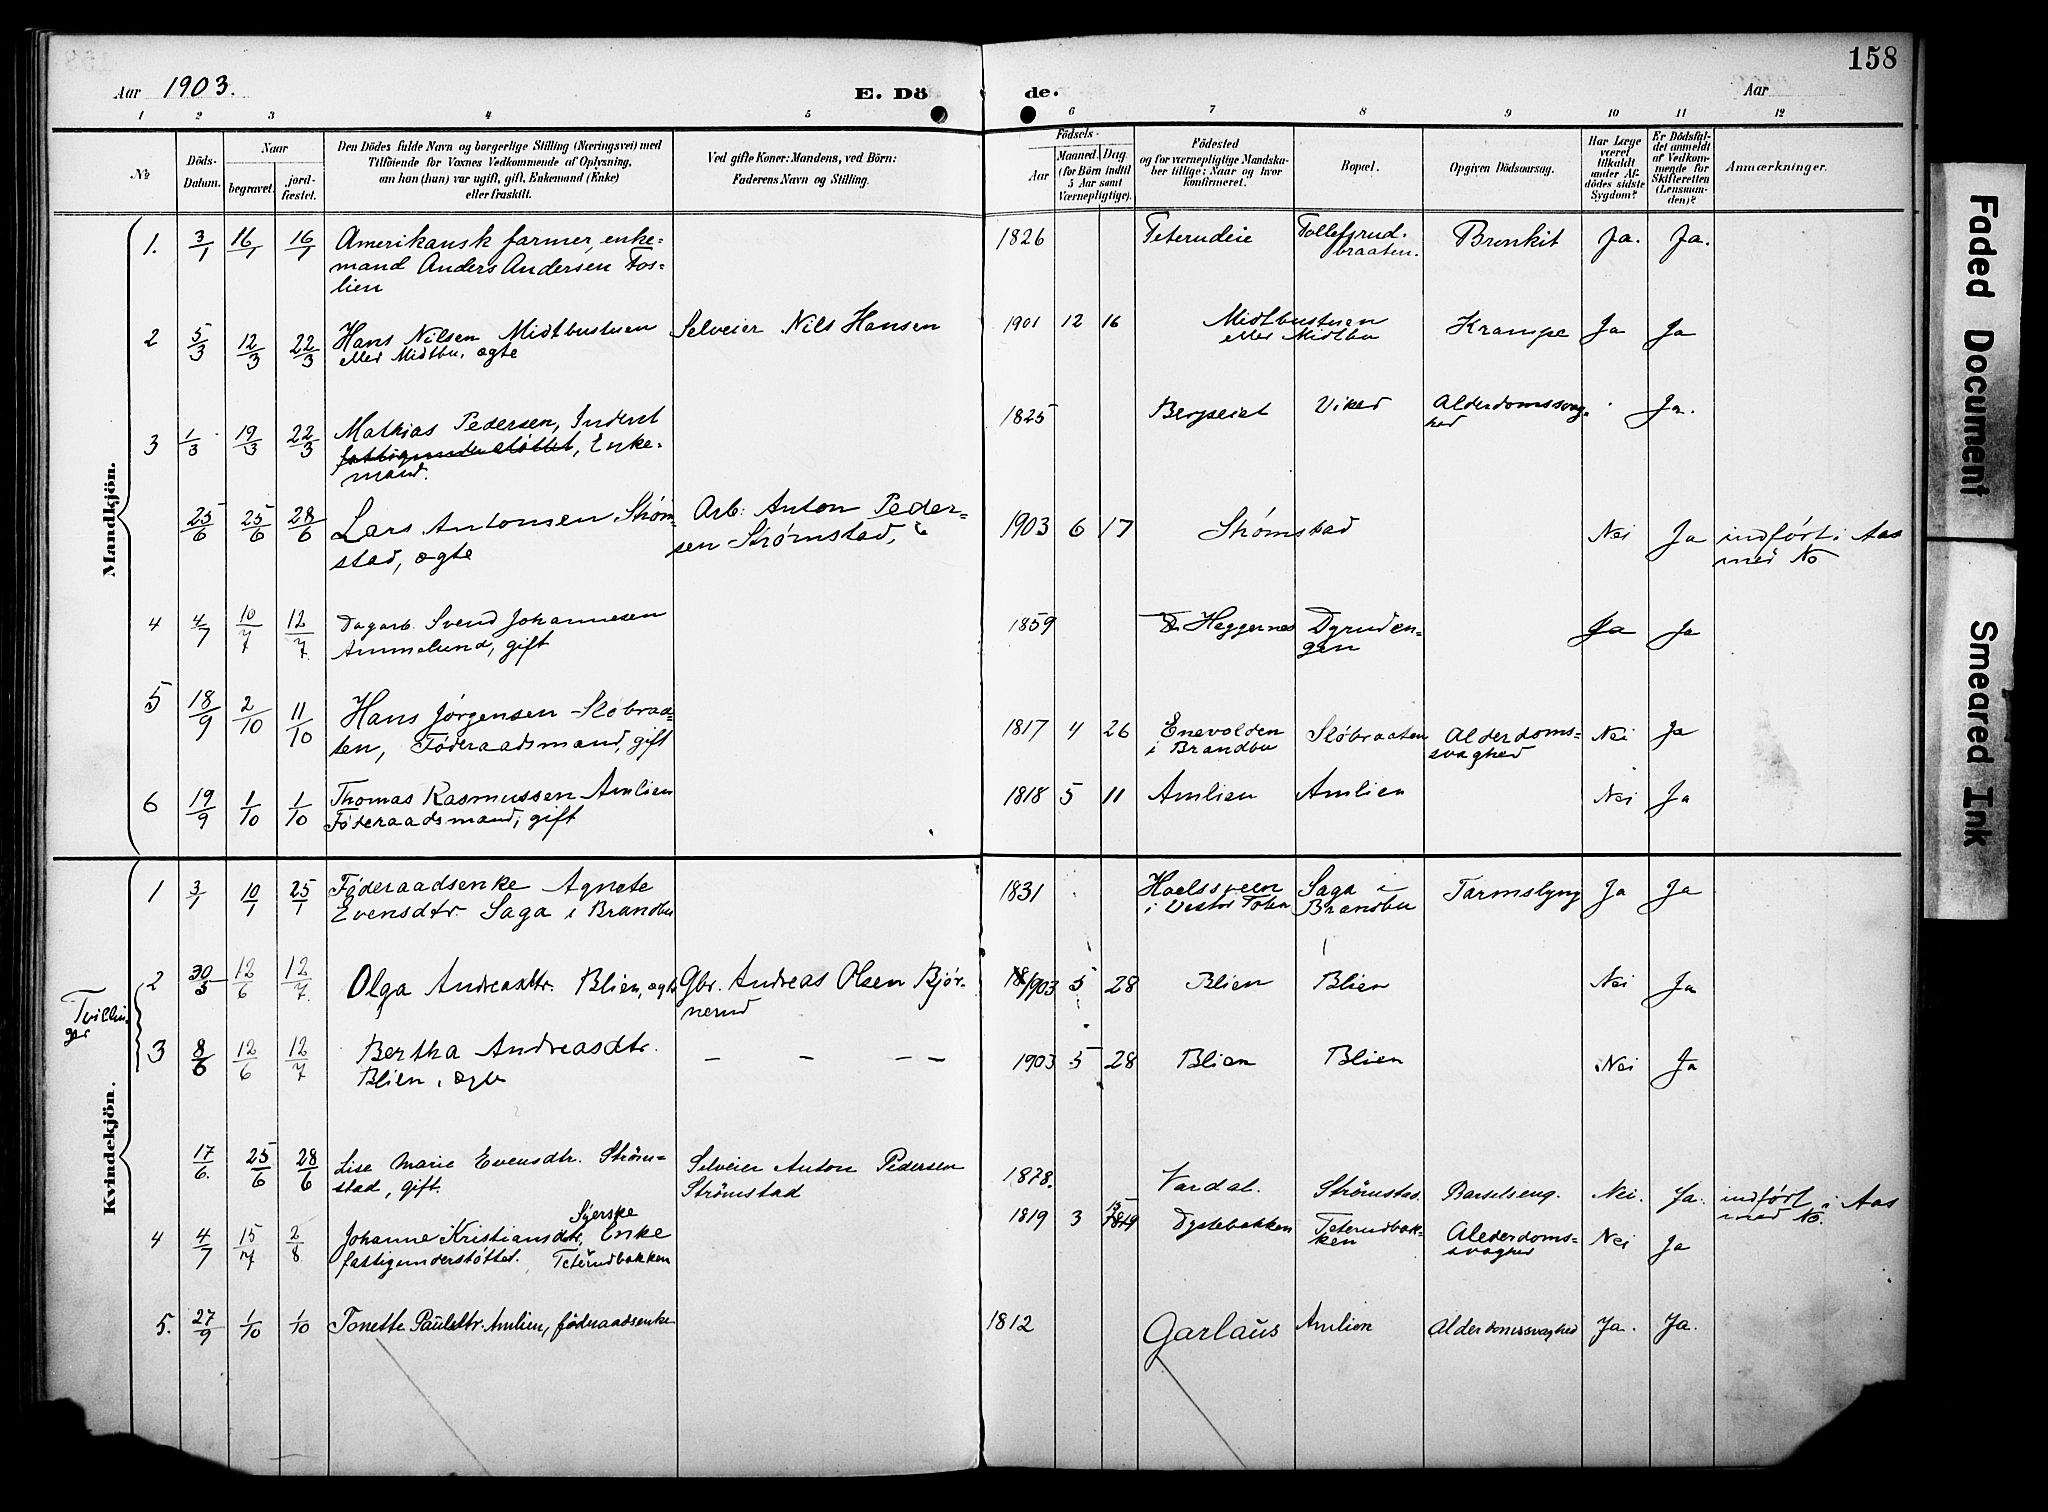 158
Aar 1903.
E. Döde.
Aar
1 2 3 4 5 6 7 8 9 10 11 12
№
Döds-
Datum.
Naar
begravet.
jord-
fæstet.
Den Dödes fulde Navn og borgerlige Stilling (Næringsvei) med
Tilföiende for Voxnes Vedkommende af Oplysning,
om han (hun) var ugift, gift, Enkemand (Enke)
eller fraskilt.
Ved gifte Koner: Mandens, ved Börn:
Faderens Navn og Stilling.
Födsels-
Aar
Maaned. Dag
(for Börn indtil
5 Aar samt
Værnepligtige).
Födested
og for værnepligtige Mandska-
ber tillige: Naar og hvor
konfirmeret.
Bopæl.
Opgiven Dödsaarsag.
Har Læge
været
tilkaldt
under Af-
dödes sidste
Sygdom?
Er Dödsfal-
det anmeldt
af Vedkom-
mende for
Skifteretten
(Lensman-
den)?
Anmærkninger.
Mandkjön.
1. 3/1 16/1 16/1 Amerikansk farmer, enke-
mand Anders Andersen Fos-
lien
1826 Teterudeie Tollefsrud-
braaten. Bronkit Ja. Ja.
2 5/3 12/3 22/3 Hans Nilsen Midtbustuen
eller Midtbu, ægte
Selveier Nils Hansen
1901 12 16 Midtbustuen
eller Midtbu Krampe Ja Ja
3 1/3 19/3 22/3 Mathias Pedersen, Inderst
fattigunderstøttet, Enke-
mand.
1825 Bergseiet Viked Alderdomssvag-
hed Ja.
25/6 25/6 28/6 Lars Antonsen Strøm-
stad, ægte
Arb. Anton Peder-
sen Strømstad,
1903 6 17 Strømstad Nei Ja indført i Aas
med No
4 4/7 10/7 12/7 Dagarb. Svend Johannesen
Ammelund, gift
1859 Heggernes Dyruden-
gen Ja Ja
5 18/9 2/10 11/10 Hans Jørgensen Slobraa-
ten, Føderaadsmand, gift
1817 4 26 Enevolden
i Brandbu Sløbraaten Alderdoms-
svaghed Nei Ja
6 19/9 1/10 1/10 Thomas Rasmussen Amlien
Føderaadsmand, gift
1818 5 11 Amlien Amlien Nei Ja
Kvindekjön.
1 3/1 10/1 25/1 Føderaadsenke Agnete
Evensdtr. Saga i Brandbu
1831 Hoelssveen
i Vestre Toten Saga i
Brandbu Tarmslyng Ja Ja
Tvillin-
ger
2 30/5 12/6 12/7. Olga Andreasdtr. Blien, ægte
Gbr. Andreas Olsen Bjør-
nerud
1903 5 28 Blien Blien Nei Ja
3 8/6 12/6 12/7 Bertha Andreasdtr.
Blien, ægte
— — — —
1903 5 28 Blien Blien Nei Ja
17/6. 25/6 28/6 Lise Marie Evensdtr. Strøm-
stad, gift.
Selveier Anton Pedersen
Strömstad
1878. Vardal. Strömstad. Barselseng. Nei. Ja. indført i Aas
med No.
4 4/7 15/7 2/8 Johanne Kristiansdtr, Syerske Enke
fattigunderstøttet. Teterudbakken
1819 3 15 Dystebakken Teterudbak-
ken Alderdoms-
svaghed Nei Ja
5. 27/9 1/10 1/10 Tonette Paulsdtr. Amlien, föderaadsenke
1812 Garlaus Amlien Alderdomssvaghed Ja. Ja.
Faded Document
Smeared Ink